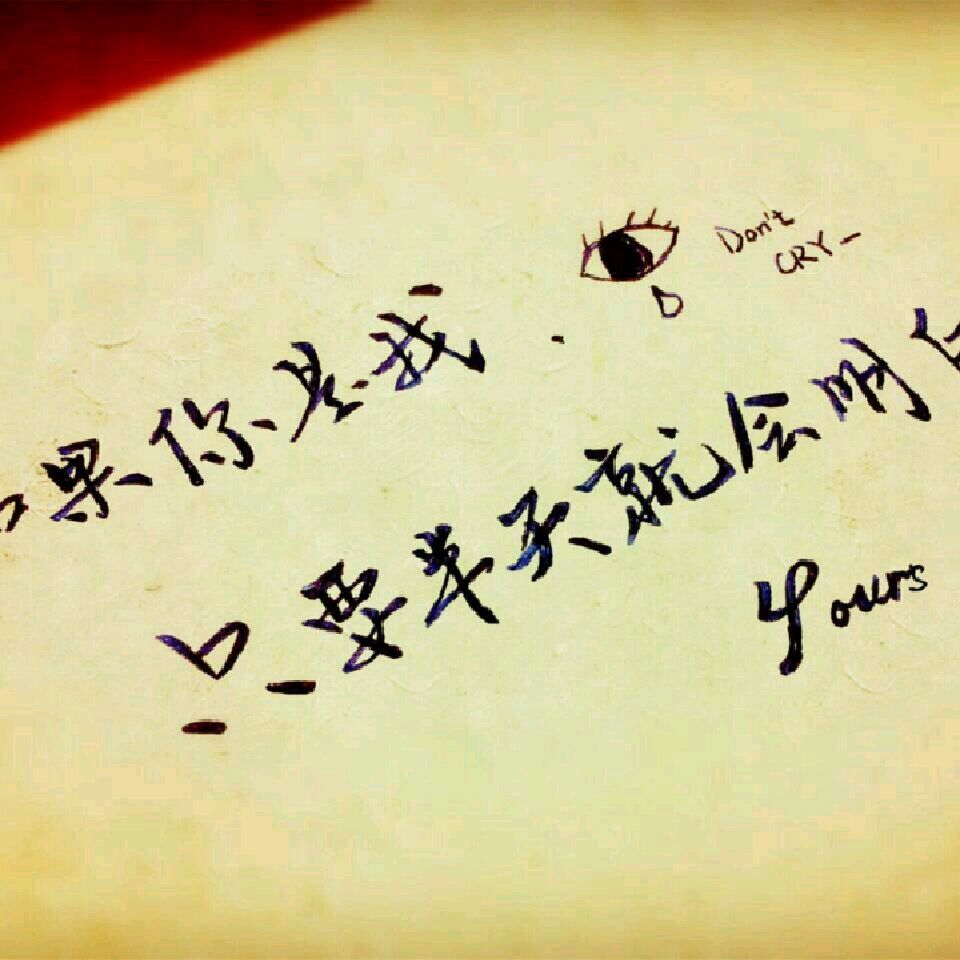 Don't
CRY
如果你是我.
只要半天就会明白
Yours